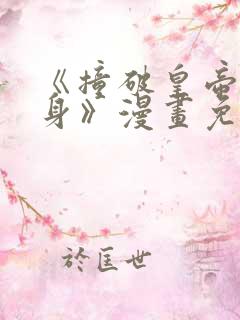 《撞破皇帝
身》漫畫免
於匡世